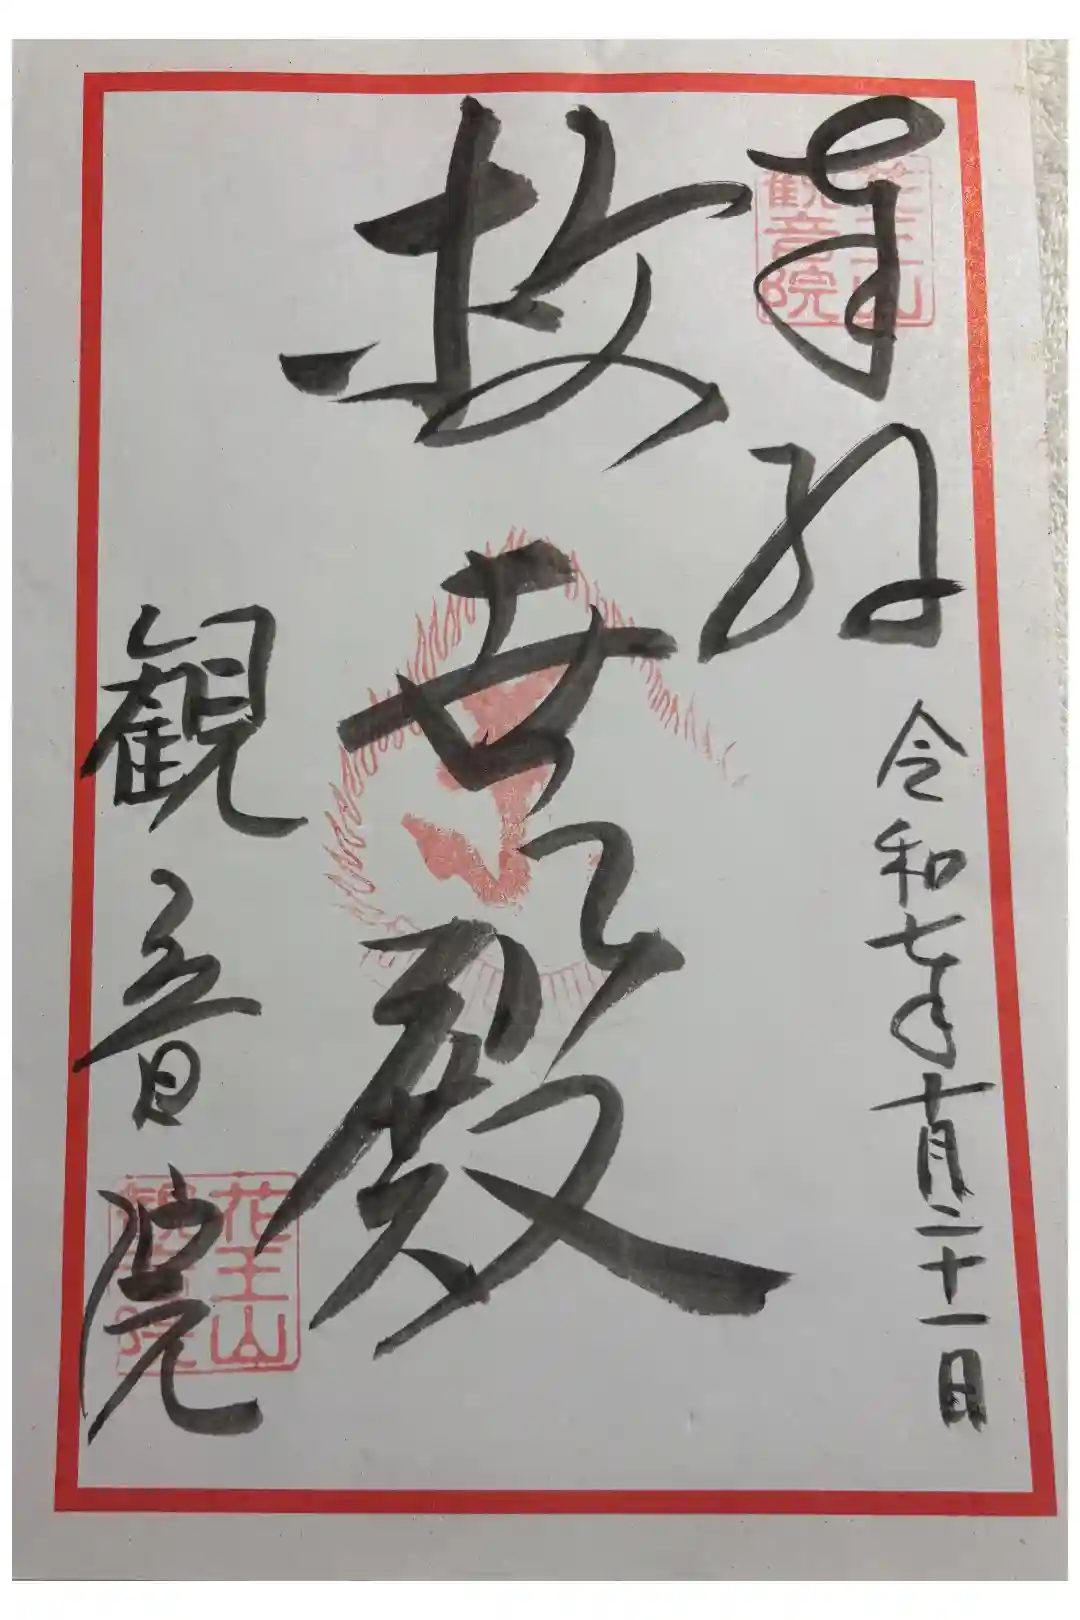 奉納
令和七年十月二十一日
救世殿
観音院
花王山
観音院
花王山
観音院